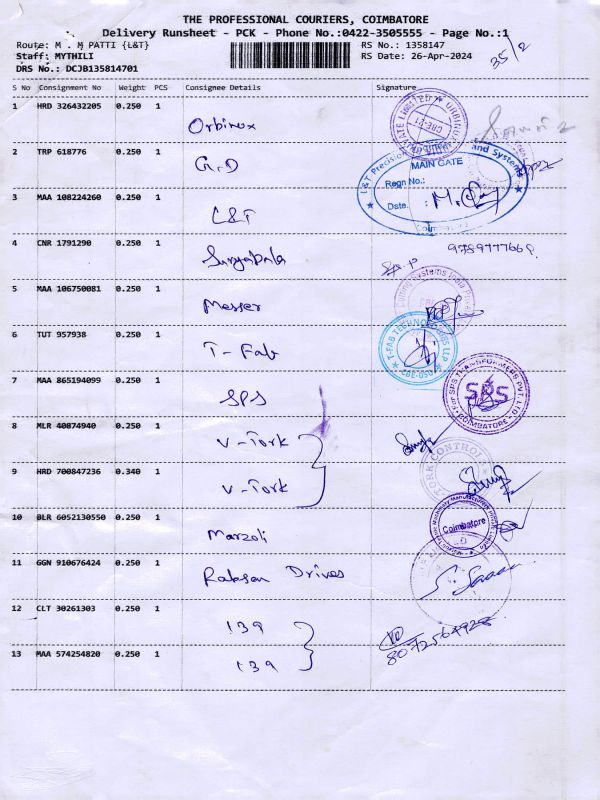 THE PROFESSIONAL COURIERS, COIMBATORE
Delivery Runsheet - PCK - Phone No.:0422-3505555 - Page No.:1
Route: M . M PATTI {L&T}
RS No.: 1358147
Staff: MYTHILI
RS Date: 26-Apr-2024
DRS No.: DCJB135814701
35/2
S No Consignment No Weight PCS Consignee Details Signature
1 HRD 326432205 0.250 1
Orbinox
2 TRP 618776 0.250 1
G.D
MAIN GATE
Regn No.:
Date. :
3 MAA 108224260 0.250 1
L&T
4 CNR 1791290 0.250 1
Suryabala
9789777669.
5 MAA 106750081 0.250 1
Messer
6 TUT 957938 0.250 1
T-Fab
T-FAB TECHNOLOGIES LLP
7 MAA 865194099 0.250 1
SPS
SPS TRANSFORMERS PVT. LTD
SPS
COIMBATORE
8 MLR 40874940 0.250 1
V-Tork
9 HRD 700847236 0.340 1
V-Tork
10 BLR 6052130550 0.250 1
Marzoli
Coimbatore
11 GGN 910676424 0.250 1
Raksan Drives
12 CLT 30261303 0.250 1
139
8072564928
13 MAA 574254820 0.250 1
139